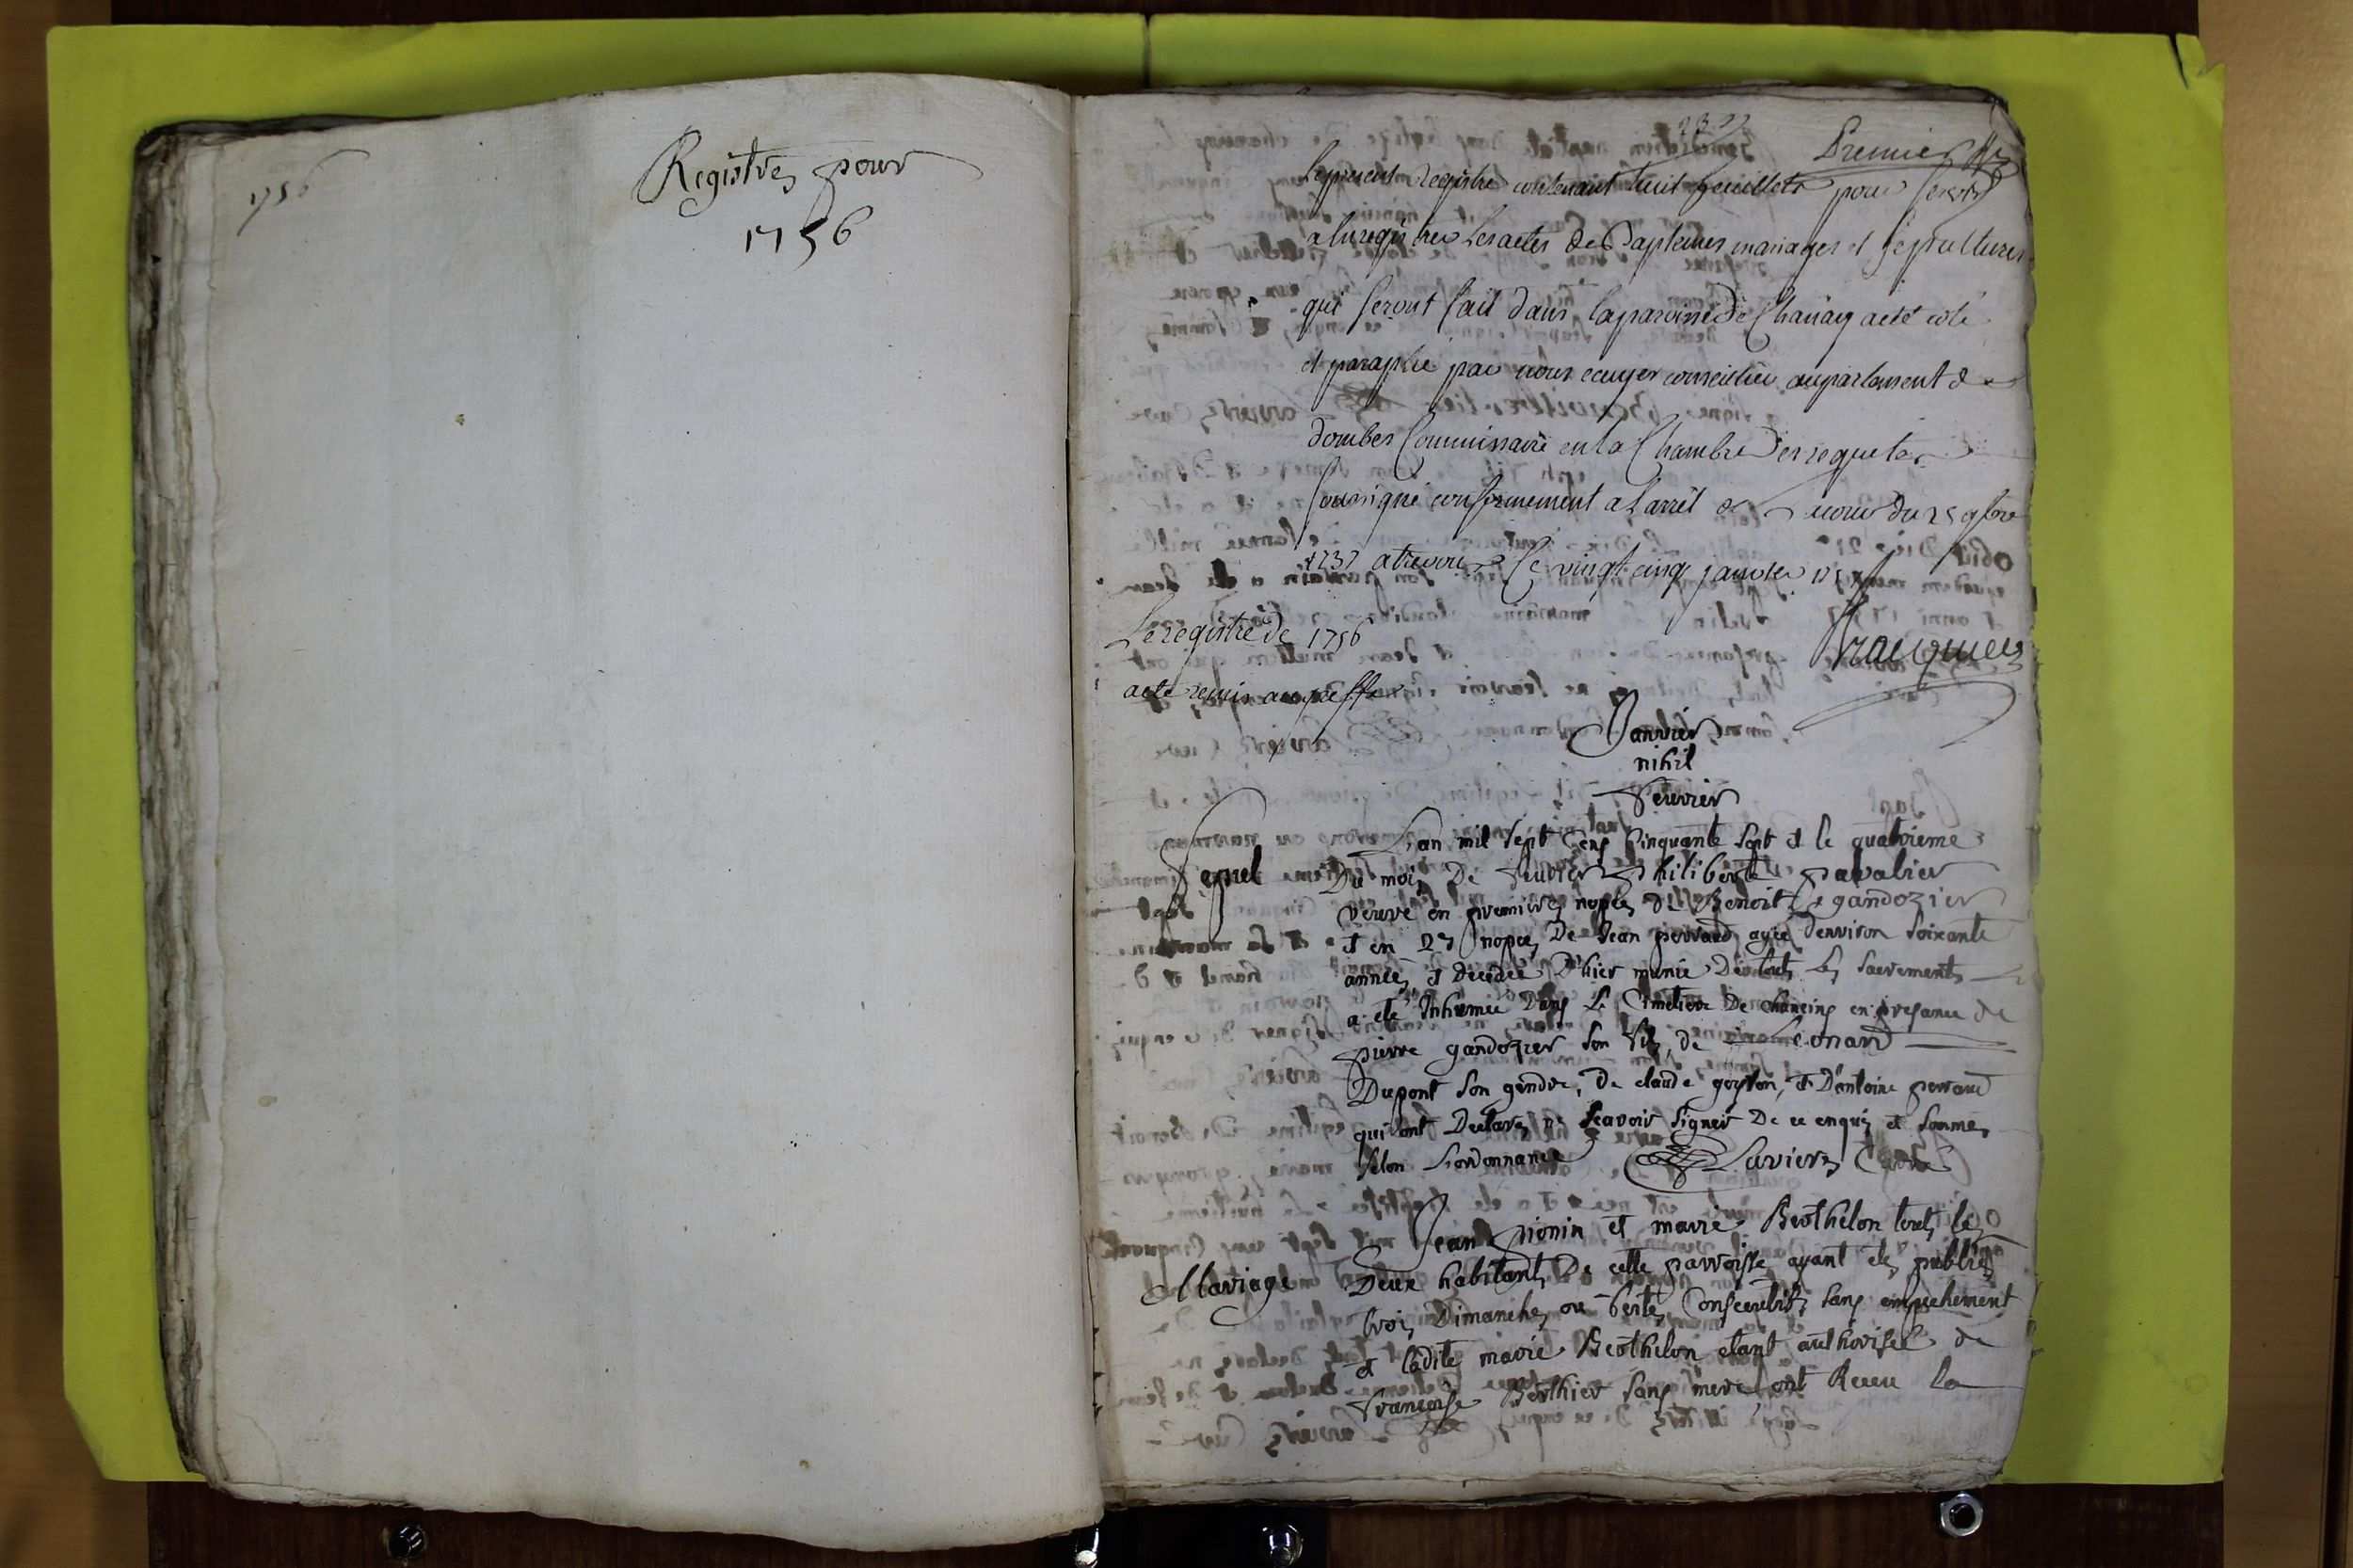 1756
Registres pour
1756
Premier
le present Registre contenant huit feuillets pour servir
a enregistrer les actes de Baptemes mariages et sepultures
qui seront fait dans la paroisse de Chaneing a eté coté
et paraphé par nous ecuyer conseiller au parlement de
dombes Commissaire en la Chambre des requetes
soussigné conformement a l'arrêt de cour du 25 9bre
1737 a trevoux le vingt cinq janvier
Le registre de 1756
a eté remis au greffe
Janvier
nihil
feuvrier
L'an mil sept Cens Cinquante sept et le quatrieme
Sepul Du mois De feuvrier philiberte pavalier
veuve en premieres nopces de Benoit gandozier
et en 2es nopces De Jean perraud agée Denviron soixante
années et Decedée D'hier munie De touts les sacrements
a eté Inhumée Dans Le Cimetiere De chaneins en presance de
pierre gandozier son fils, de Leonard
Dupont son gendre, De claude goyton, et D'antoine perraud
qui ont Declarez ne sçavoir signer De ce enquis et sommes
selon L'ordonnance Laviere Curé
Jean pionin et marie Berthelon touts les
Mariage Deux habitants De cette parroisse ayant etes publiés
trois Dimanches ou festes Consecutifs sans empechement
et ladite marie Berthelon etant authorisee de
françoise Berthier sans mere ont Receu la